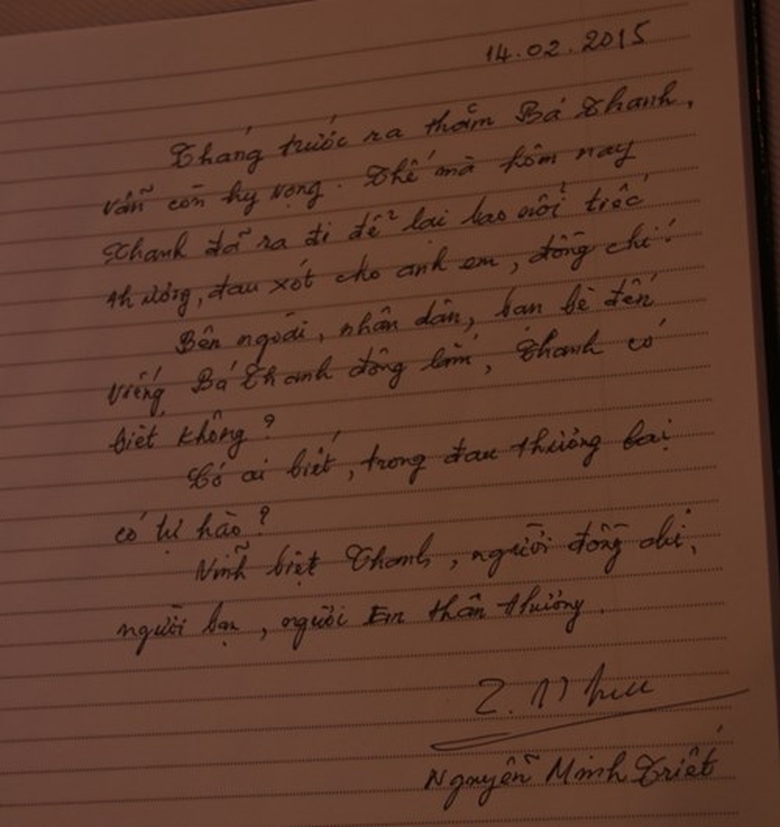 14.02.2015
Tháng trước ra thăm Bá Thanh,
vẫn còn hy vọng. Thế mà hôm nay
Thanh đã ra đi để lại bao nỗi tiếc
thương, đau xót cho anh em, đồng chí.
Bên ngoài, nhân dân, bạn bè đến
viếng Bá Thanh đông lắm, Thanh có
biết không?
Có ai biết, trong đau thương lại
có tự hào?
Vĩnh biệt Thanh, người đồng chí,
người bạn, người Em thân thương.
Nguyễn Minh Triết